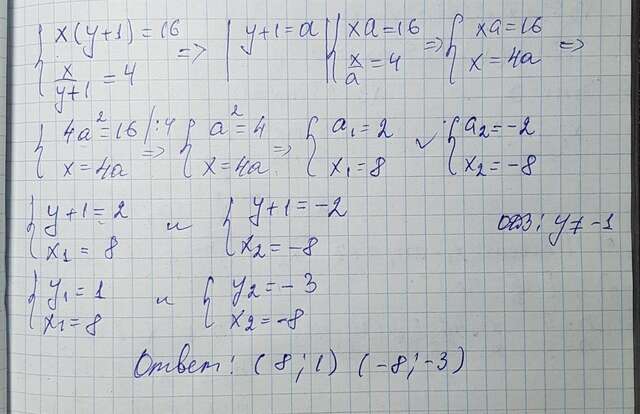 { x(y+1) = 16 ; x/(y+1) = 4 => | y+1 = a | { xa = 16 ; x/a = 4 => { xa = 16 ; x = 4a =>
{ 4a² = 16 /:4 ; x = 4a => { a² = 4 ; x = 4a => { a₁ = 2 ; x₁ = 8 ✓ { a₂ = -2 ; x₂ = -8
{ y+1 = 2 ; x₁ = 8 и { y+1 = -2 ; x₂ = -8 ОДЗ: y ≠ -1
{ y₁ = 1 ; x₁ = 8 и { y₂ = -3 ; x₂ = -8
Ответ: (8; 1) (-8; -3)